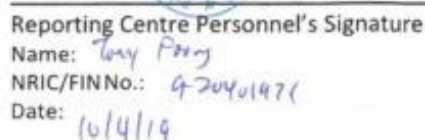 Reporting Centre Personnel's Signature
Name: Tony
NRIC/FIN No.:
Date: 10/4/19